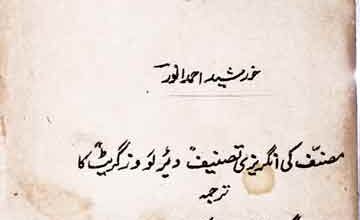 خورشید احمد انور
مصنف کی انگریزی تصنیف "ویئر لو وز گریٹ" کا
ترجمہ